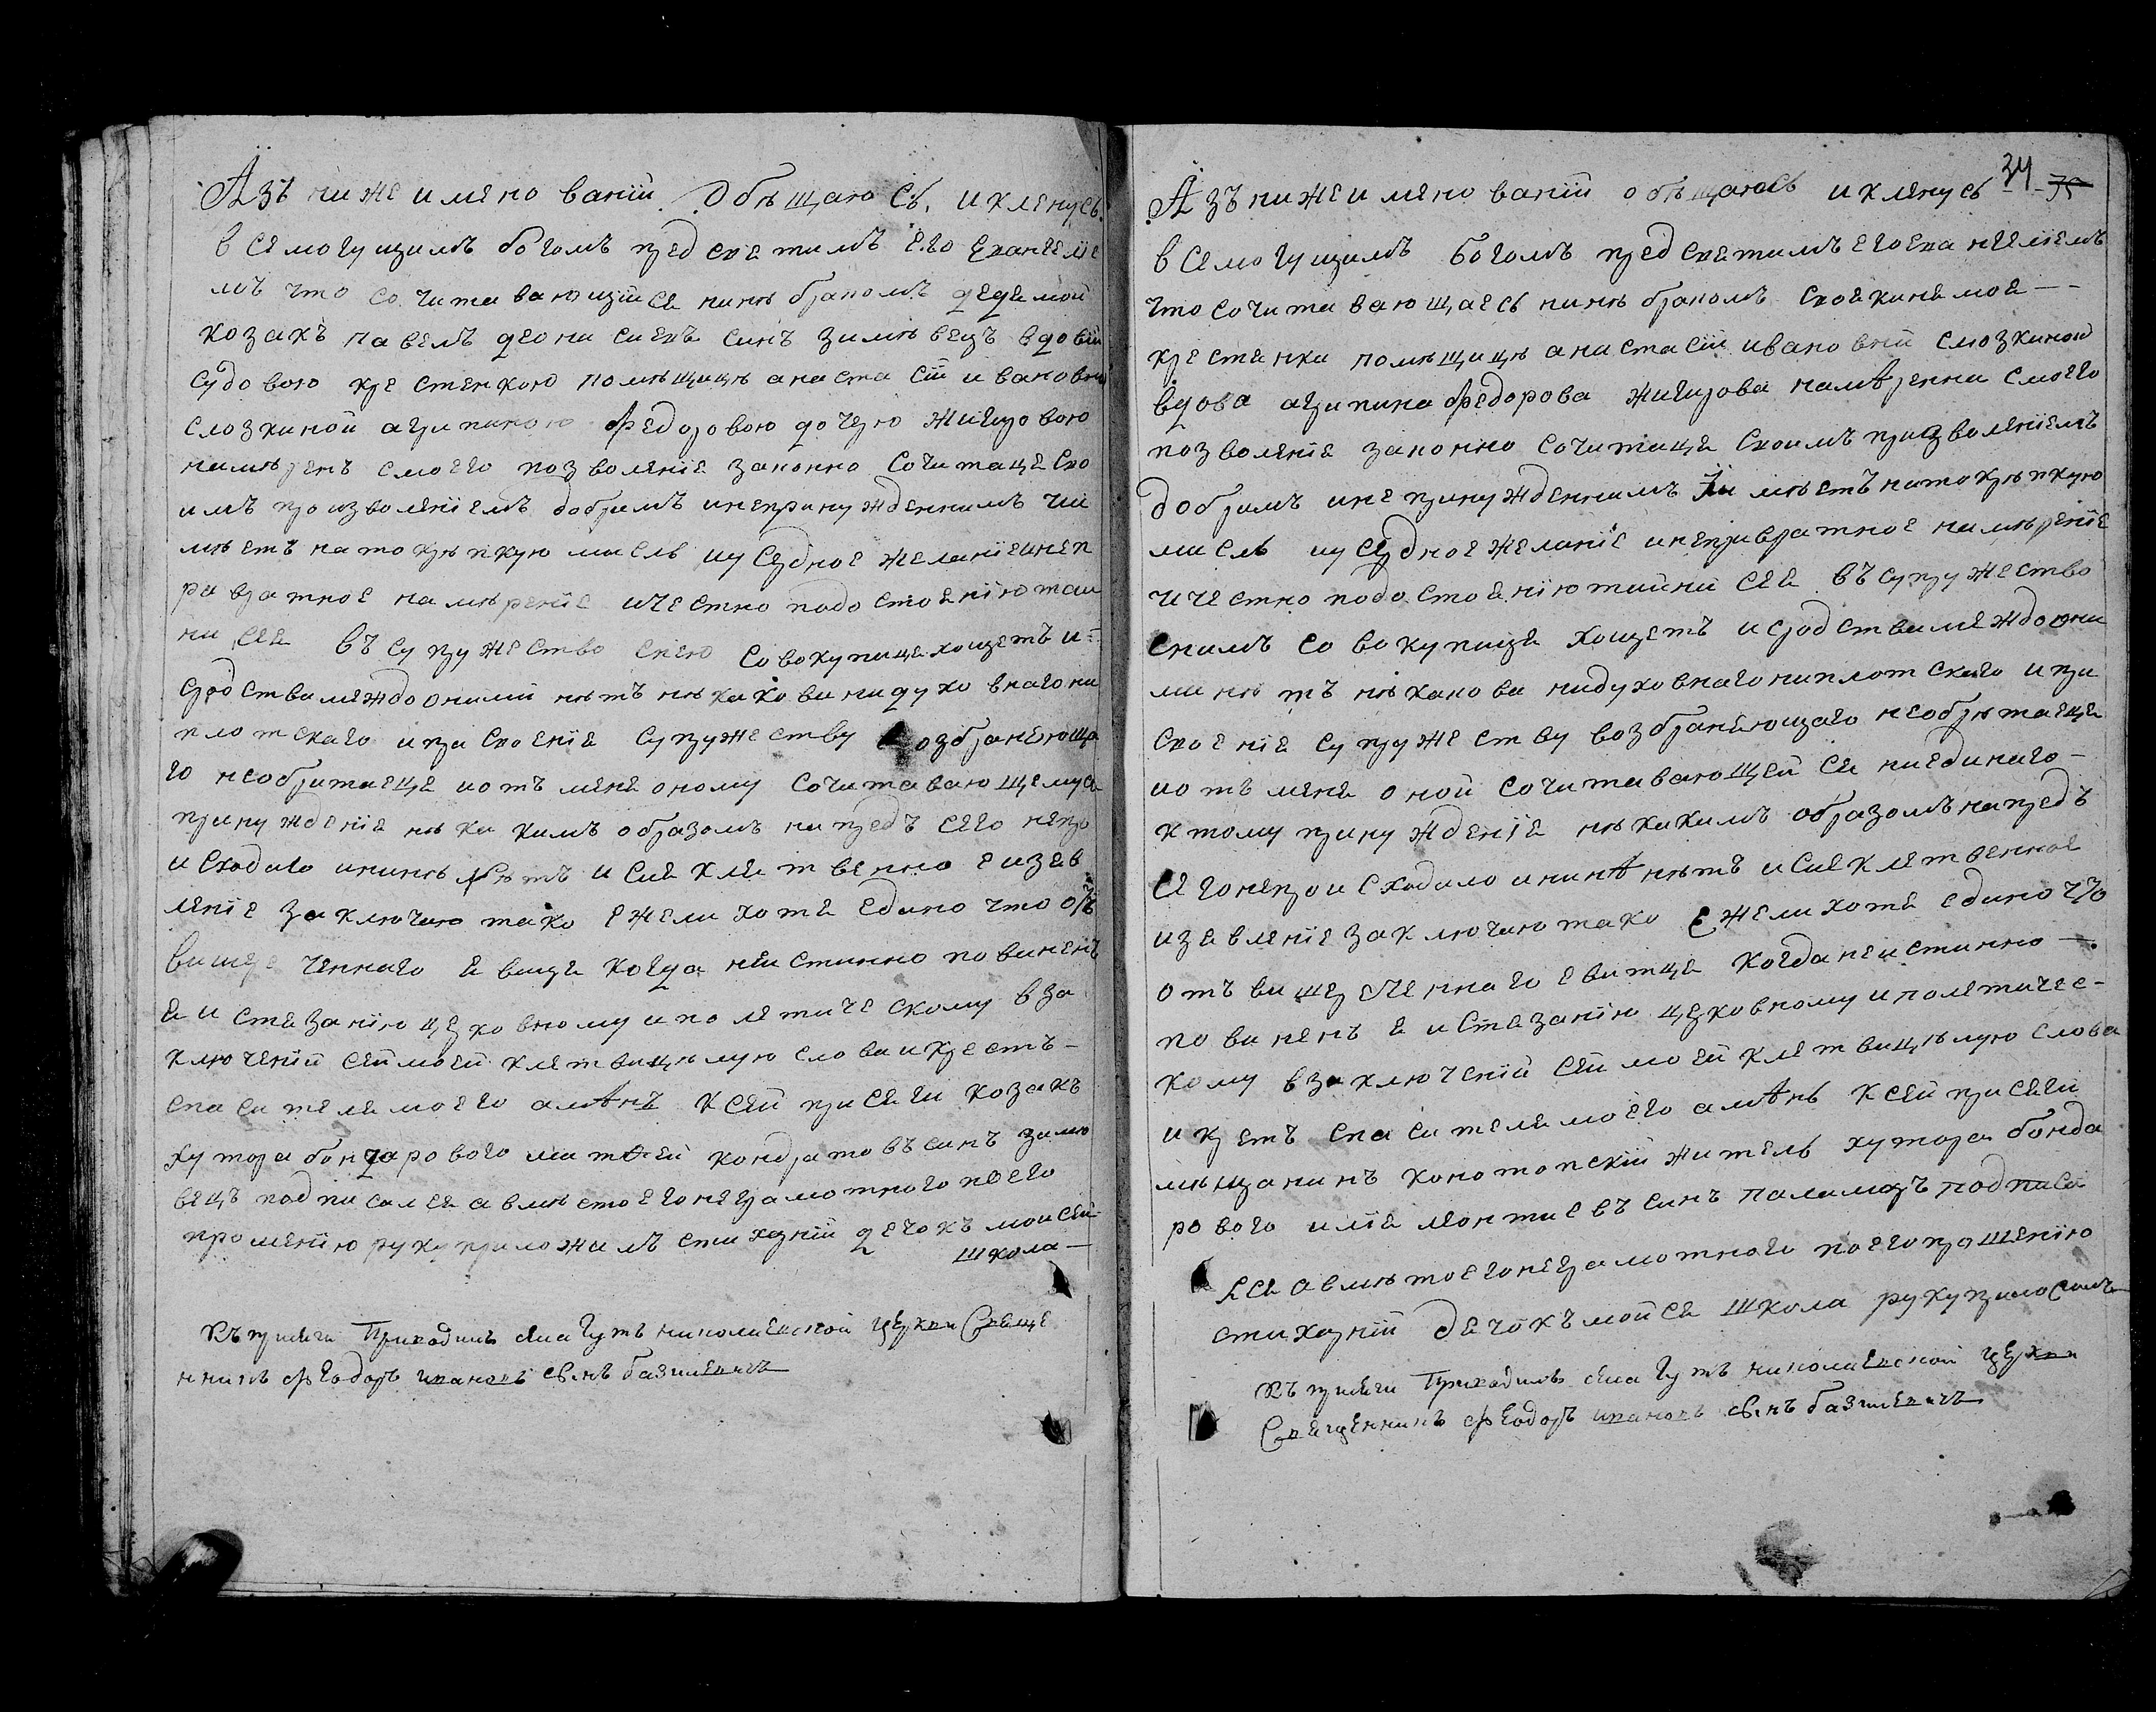 Азъ нижеименованій обѣщаюсь, и кленусь
всемогущимъ богомъ предсветимъ его еvангеліе
мъ что сочитавающійсе нинѣ бракомъ деде мой
козакъ павелъ деонисиевъ синъ зимѣвецъ вдовій
судовою крестенкою помѣщицѣ анастасіи ивановни
слозкиной агрипиною федоровою дочерю жигировою
намѣренъ смоего позволеніе законно сочитаце сво
имъ произволеніемъ добримъ инепринужденнимъ чи
мѣетъ натокрѣпкую мисль иусердное желаніеинеп
равратное намѣреніе ичестно подостоенію таи
ни сее въсупружество снею совокупице хощетъ и
сродствамеждоонимй нѣтъ нѣкакова нидуховнагони
плотскаго ипри своеніе супружеству возбранеюща
го необритаеце иотъ мене оному сочитавающемусе
принужденіе нѣкакимъ образомъ напредъ сего непро
исходило ининѣ нѣтъ исие клетвенное изев
леніе заключаю тако ежели хоте едино что отъ
вишереченнаго евице когда неистинно повиненъ
е истезанію церковному иполетическому вза
ключеній сеймоей клетвицѣлую слова икрестъ
спасителе моего аминь ксей присеги козакъ
хутора бондарового матфей кондратовъсинъ зимѣ
вецъ подписалсе авмѣстоегонеграмотного поего
прошенію рукуприложилъ стихарній дечокъ моисей
школа
Къ присеги Приводилъ села Гутъ николаевской церкви Свеще
нникъ феодоръ ивановъ синъ базилевичъ
34 35
Азъ нижеименованій обѣщаюсь икленусь
всемогущимъ богомъ предсветимъ егоеvангеліемъ
что сочитавающаесь нинѣ бракомъ своекине мое
крестенки помѣщицѣ анастасій ивановней слозкиной
вдова агрипина федорова жигирова намѣренна смоего
позволеніе законно сочитаце своимъ призволеніемъ
добримъ инепринужденнимъ Имѣетъ натокрѣпкую
мисль иусердное желаніе инепривратное намѣреніе
ичестно подостоенію тайни сее въсупружество
снимъ совокупище хощетъ исродствамеждоони
ми нѣтъ нѣкакова нидуховнаго ниплотскаго ипри
своеніе супружеству возбранеющаго необрѣтаеце
иотъ мене оной сочитавающейсе ниединаго
ктому принужденіе нѣкакимъ образомъ напредъ
сегонепроисходило ининѣ нѣтъ исие клетвенное
изевленіе заключаю тако ежели хоте едино что
отъ вишереченнаго евитце когда неистинно
повиненъ е истезанію церковному иполетичес
кому взаключеній сей моей клетвицѣлую слова
икретъ спасителе моего аминь ксей присеги
мѣщанинъ конотопскій житель хутора бонда
рового иліе леонтиевъ синъ паламаръ подписа
лсе авмѣтоегонеграмотного поегопрошенію
стихарній дечокъ мойсе школа рукуприложилъ
Къ присеги Приводилъ села Гутъ николаевской церкви
Свещенникъ феодоръ ивановъ синъ базилевичъ